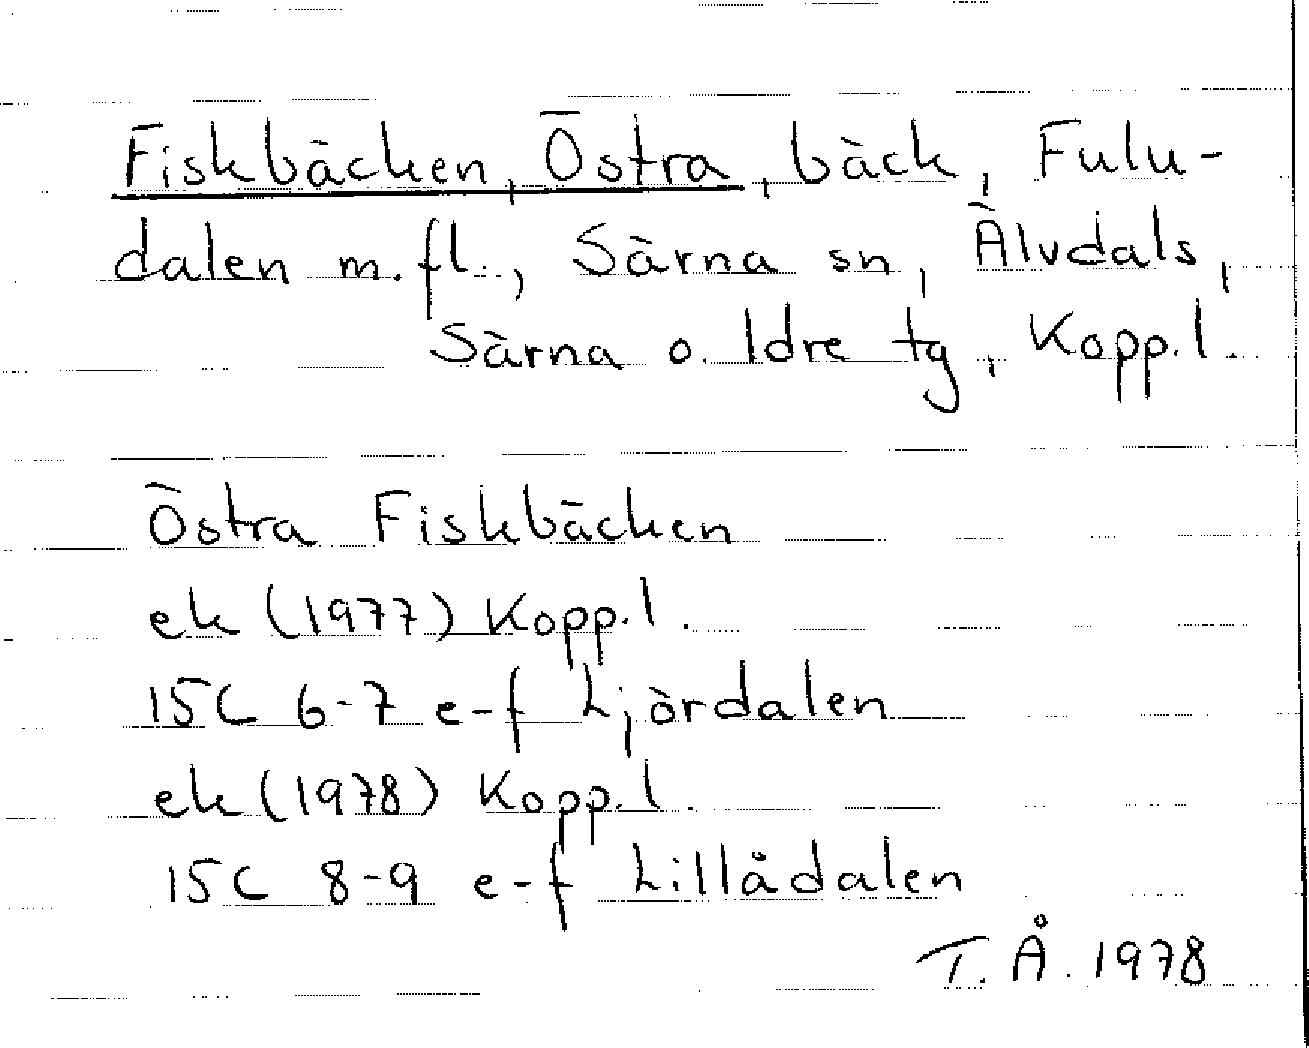 Fiskbäcken, Östra, bäck, Fulu-
dalen m.fl., Särna sn, Älvdals,
Särna o. Idre tg, Kopp.l.
Östra Fiskbäcken
ek (1977) Kopp.l.
15C 6-7 e-f Ljördalen
ek (1978) Kopp.l.
15C 8-9 e-f Lillådalen
T.Å. 1978